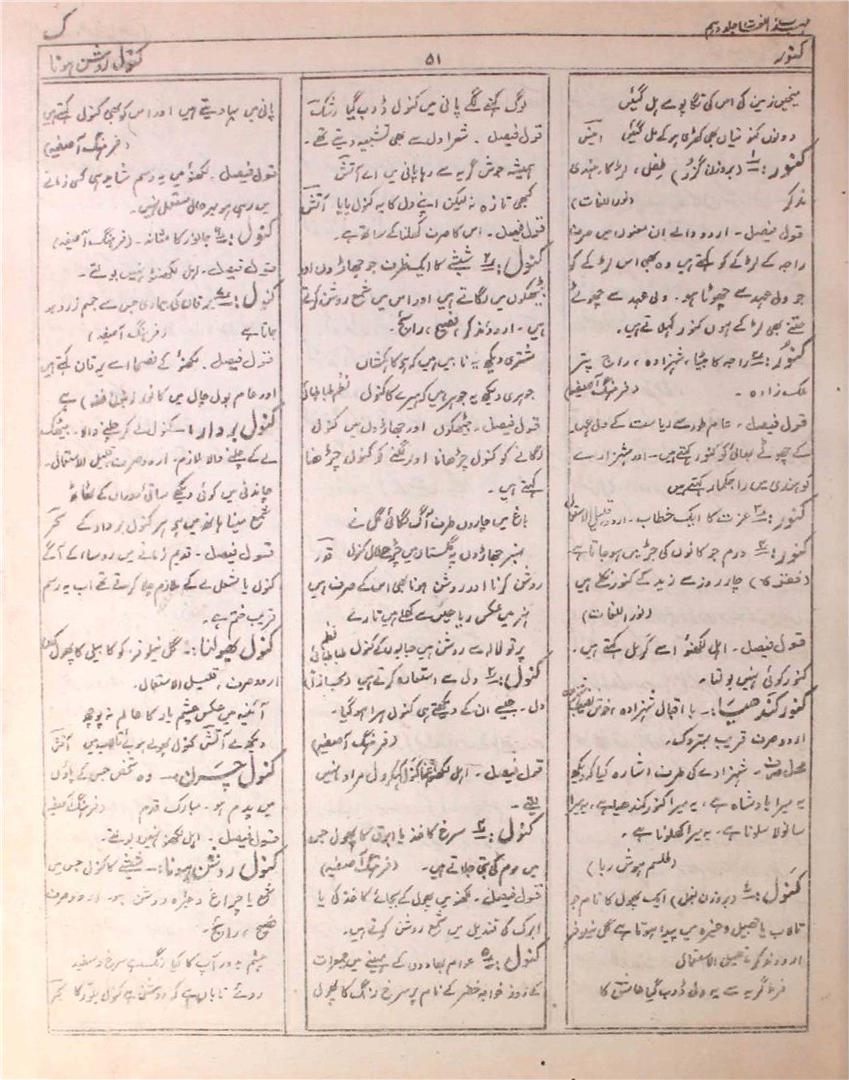 مہذب اللغات جلد دہم
ک
کنور
۵۱
کنول روشن ہونا
میخیں زمین کی اس کی تگاپو سے ہل گئیں
دونوں کنوتیاں بھی کھڑی ہو کے مل گئیں انیسؔ
کنور :- (بروزن گزر) طفل، لڑکا۔ ہندی
مذکر (نور اللغات)
قول فیصل۔ اردو والے ان معنوں میں صرف
راجہ کے لڑکے کو کہتے ہیں وہ بھی اس لڑکے کو
جو ولی عہد سے چھوٹا ہو۔ ولی عہد سے چھوٹے
جتنے بھی لڑکے ہوں کنور کہلاتے ہیں۔
کنور :- راجہ کا بیٹا، شہزادہ، راج پتر
ملک زادہ۔ (فرہنگ آصفیہ)
قول فیصل۔ عام طور سے ریاست کے ولی عہد
کے چھوٹے بھائی کو کنور کہتے ہیں۔ اور شہزادے
کو ہندی میں راجکمار کہتے ہیں
کنور :- عزت کا ایک خطاب۔ اردو قلیل الاستعمال
کنور :- ورم جو کانوں کی جڑ میں ہو جاتا ہے
(فقرہ) چار روز سے زید کے کنور نکلے ہیں
(نور اللغات)
قول فیصل۔ اہل لکھنؤ اسے کہتے ہیں۔
کنور کوئی نہیں بولتا۔
کنور کندھیا :- با اقبال شہزادہ، خوش نصیب
اردو صرف قریب بمتروک۔
محل صرف۔ شہزادے کی طرف اشارہ کیا کہ دیکھ
یہ میرا بادشاہ ہے، یہ میرا کنور کندھیا ہے، یہ میرا
سانولا سلونا ہے۔ یہ میرا کھلونا ہے۔
(طلسم ہوش ربا)
کنول :- (بروزن) ایک پھول کا نام جو
تالاب یا جھیل وغیرہ میں پیدا ہوتا ہے گل نیلوفر
اردو مذکر قلیل الاستعمال
فرط گریہ سے یہ دل ڈوب گیا عاشق کا
لوگ کہنے لگے پانی میں کنول ڈوب گیا رشکؔ
قول فیصل۔ شعرا دل سے بھی تشبیہ دیتے تھے۔
ہمیشہ جوش گریہ سے رہا پانی میں اے آتشؔ
کبھی تازہ نہ لیکن اپنے دل کا یہ کنول پایا آتشؔ
قول فیصل۔ اس کا صرف کھلنا کے ساتھ ہے۔
کنول :- شیشے کا ایک ظرف جو جھاڑوں اور
بیٹھکوں میں لگاتے ہیں اور اس میں شمع روشن کرتے
ہیں۔ اردو مذکر، فصیح، رائج۔
مشتری دیکھ یہ تابیں ہیں کہ ہے کاہکشاں
جوہری دیکھ یہ جوہر ہیں کہ ہیرے کا کنول نظم طباطبائی
قول فیصل۔ بیٹھکوں اور جھاڑوں میں کنول
لگانے کو کنول چڑھانا اور لگنے کو کنول چڑھنا
کہتے ہیں۔
باغ میں چاروں طرف آگ لگائی گل نے
سبز جھاڑوں پہ گلستاں میں چڑھے لال کنول
روشن کرنا اور روشن ہونا بھی اس کے صرف ہیں
نہر میں عکس ریاحیں سے کھلے ہیں تارے
پرتو لالہ سے روشن ہیں حبابوں کے کنول نظم طباطبائی
کنول :- دل سے استعارہ کرتے ہیں (مجازاً)
دل۔ جیسے ان کے دیکھتے ہی کنول ہرا ہو گیا۔
(فرہنگ آصفیہ)
قول فیصل۔ اہل لکھنؤ تنہا کنول کہہ کر دل مراد نہیں
لیتے۔
کنول :- سرخ کاغذ یا ابرق کا پھول جس
میں موم کی بتی جلاتے ہیں۔ (فرہنگ آصفیہ)
قول فیصل۔ لکھنؤ میں پھول کے بجائے کاغذ کی یا
ابرک کی قندیل میں شمع روشن کرتے ہیں۔
کنول :- عوام بھادوں کے مہینے میں جمعرات
کے روز خواجہ خضر کے نام پر سرخ رنگ کا پھول
پانی میں بہا دیتے ہیں اور اس کو بھی کنول کہتے ہیں
(فرہنگ آصفیہ)
قول فیصل۔ لکھنؤ میں یہ رسم شاید ہی کسی زمانے
میں رہی ہو بہرحال مستعمل نہیں۔
کنول :- جانور کا مثانہ۔ (فرہنگ آصفیہ)
قول فیصل۔ اہل لکھنؤ نہیں بولتے۔
کنول :- یرقان کی بیماری جس سے جسم زرد ہو
جاتا ہے (فرہنگ آصفیہ)
قول فیصل۔ لکھنؤ کے فصحا اسے یرقان کہتے ہیں
اور عام بول چال میں کانور ہے
کنول بردار :- کنول لے کر چلنے والا۔ بیٹھک
لے کے چلنے والا ملازم۔ اردو صرف قلیل الاستعمال۔
چاندنی میں کوئی دیکھے ساقیٔ دوراں کے ٹھاٹھ
شمع مینا ہاتھ میں ہے مہر کنول بردار کے سحرؔ
قول فیصل۔ قدیم زمانے میں روساء کے آگے
کنول یا مشعل لے کے ملازم چلا کرتے تھے اب یہ رسم
قریب ختم ہے۔
کنول پھولنا :- گل نیلوفر کو کا بیلی کا پھول کھلنا
اردو صرف، قلیل الاستعمال۔
آئینہ میں عکس چشم یار کا عالم نہ پوچھ
دیکھ لے آتشؔ کنول پھولے ہوئے تالاب میں آتشؔ
کنول چرن :- وہ شخص جس کے پاؤں
میں پدم ہو۔ مبارک قدم (فرہنگ آصفیہ)
قول فیصل۔ اہل لکھنؤ نہیں بولتے۔
کنول روشن ہونا :- شیشے کا کنول جس میں
شمع یا چراغ وغیرہ روشن ہو۔ اردو صرف
فصیح، رائج۔
چشم بد دور آپ کا کیا رنگ ہے سرخ و سفید
روئے تاباں ہے کہ روشن ہے کنول بلور کا سحرؔ